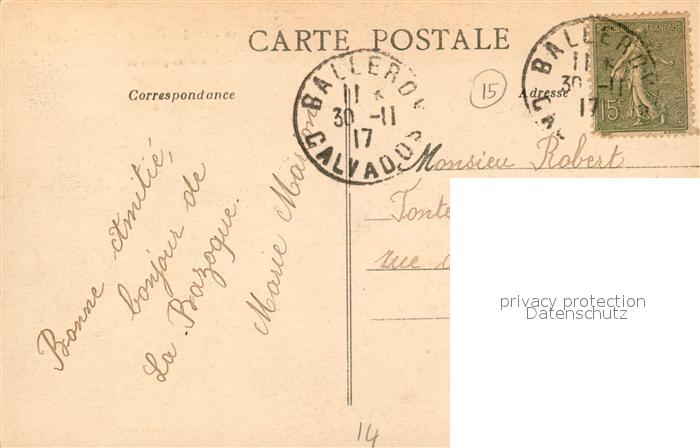 CARTE POSTALE
Correspondance
Adresse
15
BALLEROY
11
30 -11
17
CALVADOS
BALLEROY
11
30 -11
17
CAL
RÉPUBLIQUE FRANÇAISE
15c
Bonne Amitié,
bonjour de
La Bazoque.
Marie
Monsieur Robert
rue
privacy protection
Datenschutz
14